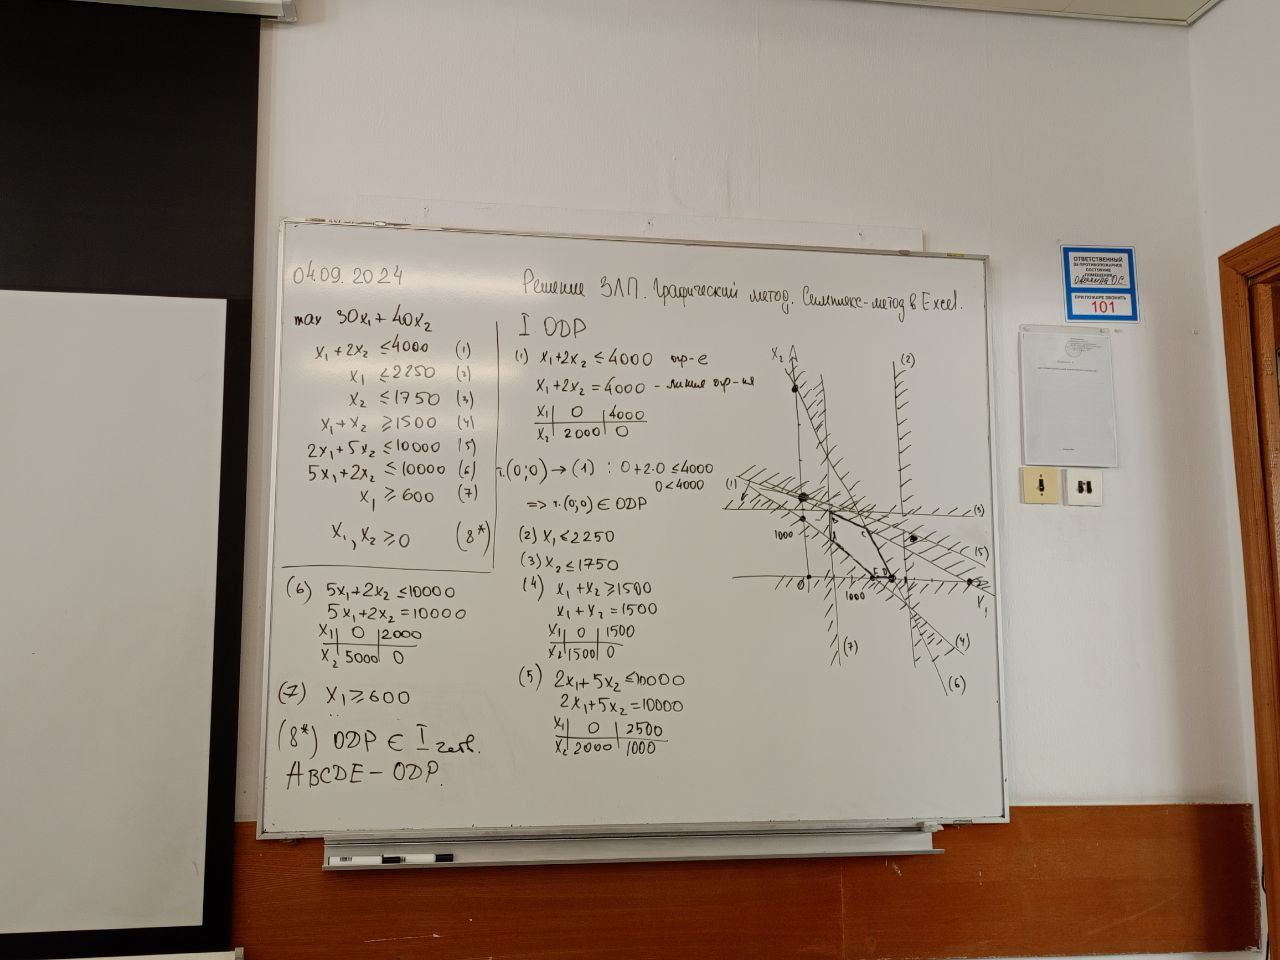 04.09.2024
Решение ЗЛП. Графический метод. Симплекс-метод в Excel.
max 30x₁ + 40x₂
x₁ + 2x₂ ≤ 4000 (1)
x₁ ≤ 2250 (2)
x₂ ≤ 1750 (3)
x₁ + x₂ ≥ 1500 (4)
2x₁ + 5x₂ ≤ 10000 (5)
5x₁ + 2x₂ ≤ 10000 (6)
x₁ ≥ 600 (7)
x₁, x₂ ≥ 0 (8*)
(6) 5x₁ + 2x₂ ≤ 10000
5x₁ + 2x₂ = 10000
x₁ | 0 | 2000
x₂ | 5000 | 0
(7) x₁ ≥ 600
(8*) ОДР ∈ I четв.
ABCDE – ОДР.
I ОДР
(1) x₁ + 2x₂ ≤ 4000 огр-е
x₁ + 2x₂ = 4000 – линия огр-ия
x₁ | 0 | 4000
x₂ | 2000 | 0
т.(0;0) → (1) : 0 + 2·0 ≤ 4000
0 < 4000
=> т.(0;0) ∈ ОДР
(2) x₁ ≤ 2250
(3) x₂ ≤ 1750
(4) x₁ + x₂ ≥ 1500
x₁ + x₂ = 1500
x₁ | 0 | 1500
x₂ | 1500 | 0
(5) 2x₁ + 5x₂ ≤ 10000
2x₁ + 5x₂ = 10000
x₁ | 0 | 2500
x₂ | 2000 | 1000
x₂
(2)
(1)
(3)
B
1000
A
C
(5)
0
E D
1000
x₁
(7)
(4)
(6)
ОТВЕТСТВЕННЫЙ
ЗА ПРОТИВОПОЖАРНОЕ
СОСТОЯНИЕ
ПОМЕЩЕНИЯ
ПРИ ПОЖАРЕ ЗВОНИТЬ
101